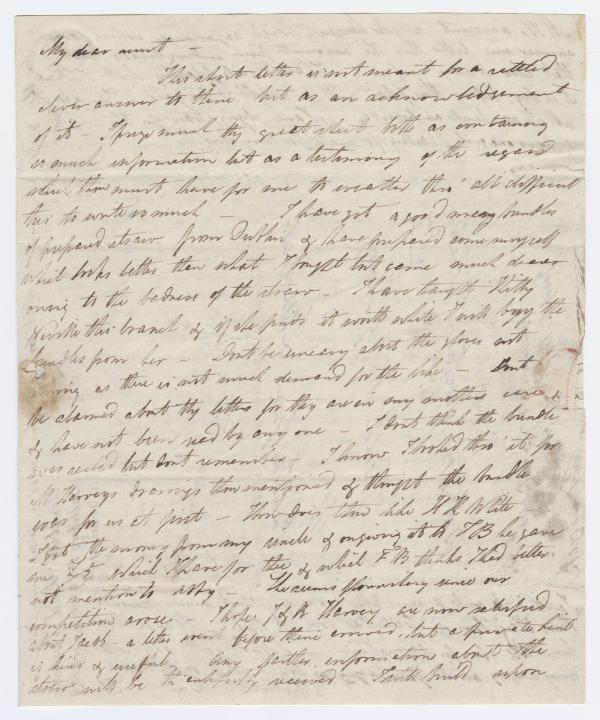 My dear aunt -
This short letter is not meant for a settled
clever answer to thine but as an acknowledgement
of it - I prize much thy great sheet both as containing
so much information but as a testimony of the regard
which thou must have for me to wade thro' all difficul
ties to write so much - I have got a good many bundles
of prepared straw from Dublin & have prepared some myself
which looks better than what I bought but came much dearer
owing to the badness of the straw - I have taught Kitty
this branch & if she finds it worth while I will buy the
bundles from her - Dont be uneasy about the gloves not
as there is not much demand for the like - Dont
be alarmed about thy letters for they are in my mothers care
& have not been read by any one - I dont think the bundle
was sealed but dont remember - I know I looked thro' it for
M Harveys drawings thou mentioned & thought the bundle
was for us at first - How does thou like H K White -
I got the money from my uncle & on giving it to F B he gave
me which I have for thee & which F B thinks I had better
not mention to - She seems since our
competition arose - I hope J & R Harvey are now satisfied
about Jacob - a letter went before thine arrived, but a private hint
is kind & useful - any further information about the
straw will be thankfully received I will build upon